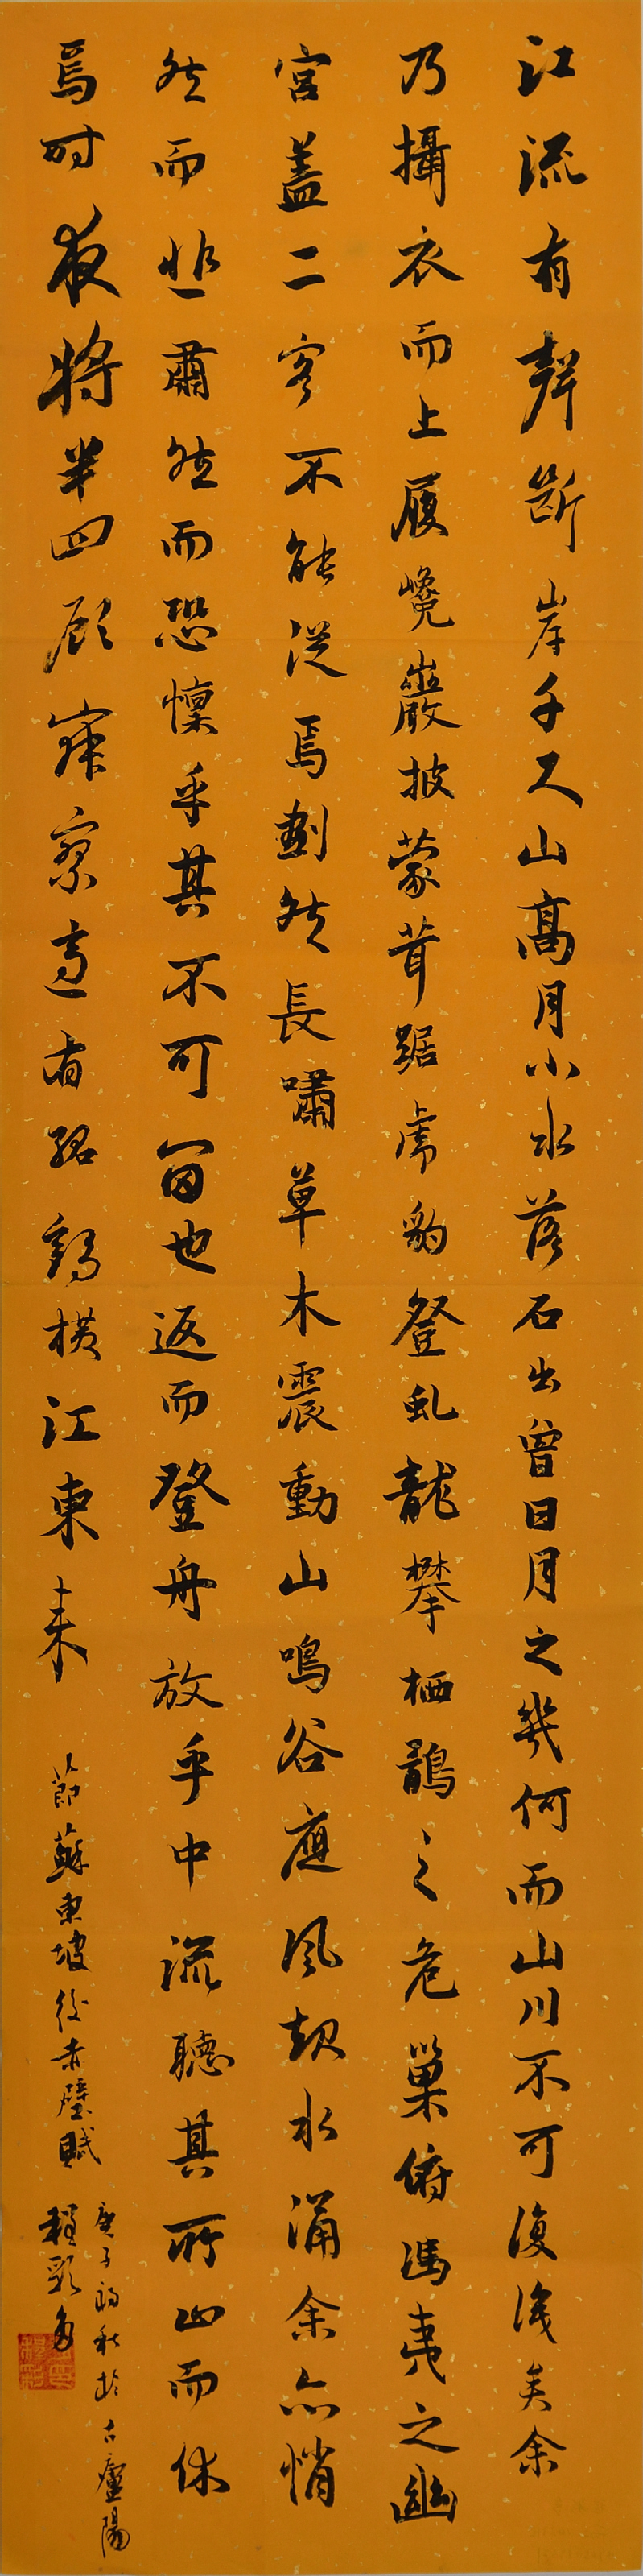 江流有聲斷岸千尺山高月小水落石出曾日月之幾何而山川不可復識矣余
乃攝衣而上履巉巖披蒙茸踞虎豹登虬龍攀栖鶻之危巢俯馮夷之幽
宮蓋二客不能從焉劃然長嘯草木震動山鳴谷應風起水涌余亦悄
然而悲肅然而恐懍乎其不可留也返而登舟放乎中流聽其所止而休
焉時夜將半四顧寂寥適有孤鶴橫江東來
節蘇東坡後赤壁賦
庚子初秋於古廬陽